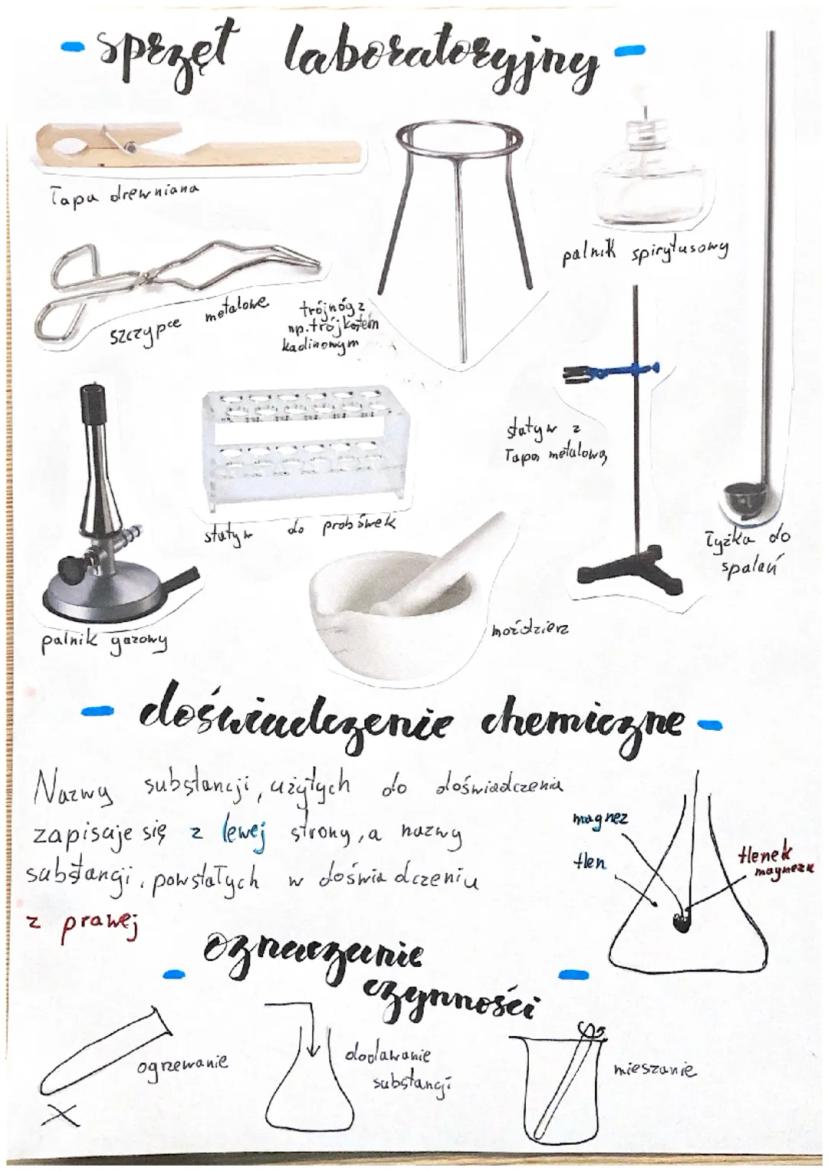 - sprzęt laboratoryjny -
łapa drewniana
palnik spirytusowy
szczypce metalowe
trójnóg z
np. trójkątem
kaolinowym
statyw z
łapą metalową
łyżka do
spalań
statyw do probówek
palnik gazowy
moździerz
- doświadczenie chemiczne -
Nazwy substancji, użytych do doświadczenia
zapisuje się z lewej strony, a nazwy
substangi, powstałych w doświadczeniu
z prawej
magnez
tlen
tlenek
magnezu
- oznaczanie
czynności -
ogrzewanie
dodawanie
substangi
mieszanie